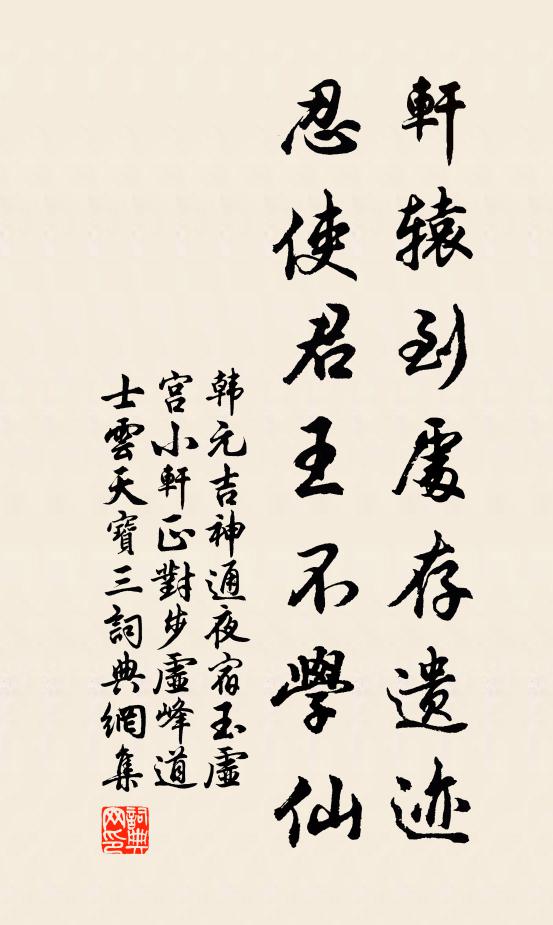 軒辕到處存遗迹
忍使君王不學仙
韩元吉神通夜宿玉虛
宫小軒正對步虛峰道
士雲天寶三詞典網集
詞典
网印